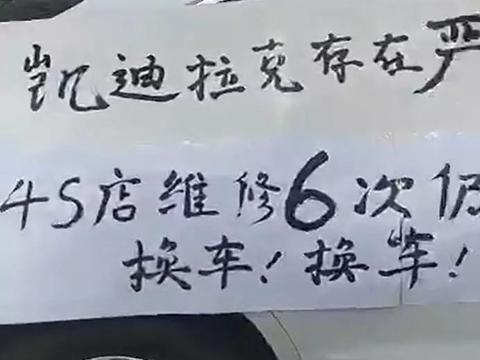 凯迪拉克存在严
4S店维修6次仍
换车！换车！